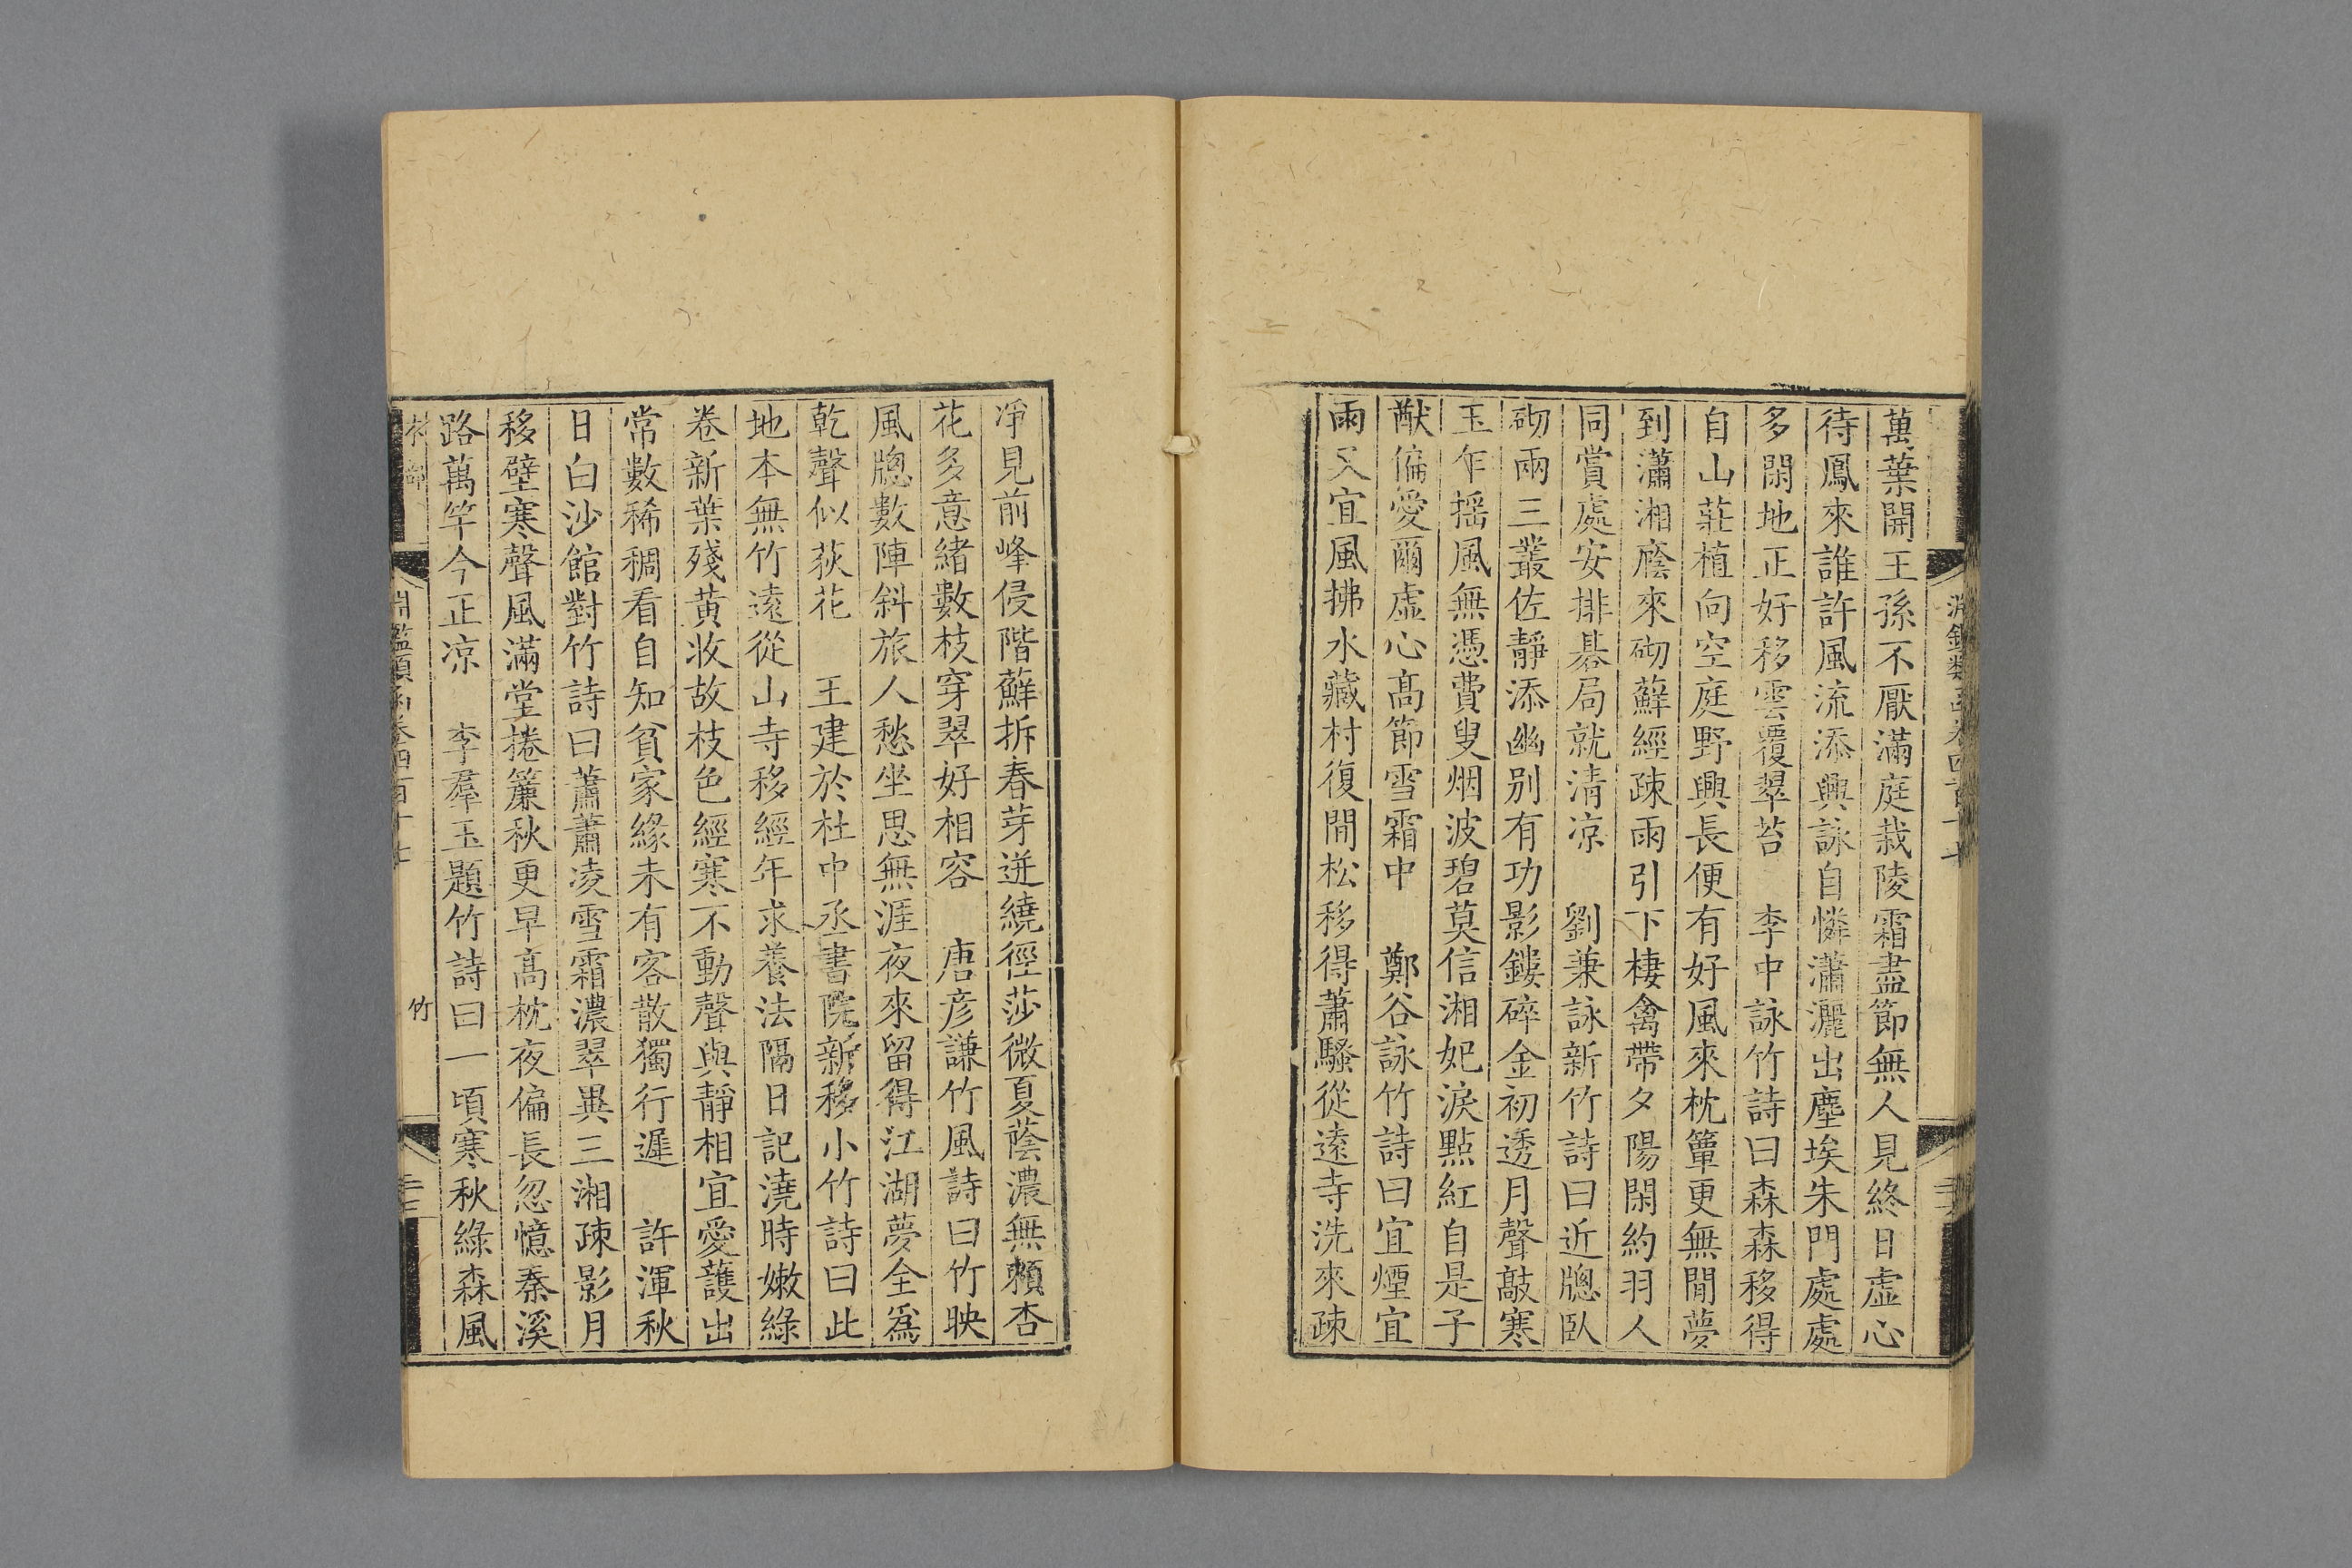 萬葉開王孫不厭滿庭栽陵霜盡節無人見終日虛心
待鳳來誰許風流添興詠自憐瀟灑出塵埃朱門處處
多閑地正好移雲覆翠苔　李中詠竹詩曰森森移得
自山莊植向空庭野興長便有好風來枕簟更無閒夢
到瀟湘廕來砌蘚經疎雨引下棲禽帶夕陽閑約羽人
同賞處安排碁局就清凉　劉兼詠新竹詩曰近牕臥
砌兩三叢佐靜添幽别有功影鏤碎金初透月聲敲寒
玉乍揺風無憑費叟烟波碧莫信湘妃淚點紅自是子
猷偏愛爾虛心髙節雪霜中　鄭谷詠竹詩曰宜煙宜
雨又宜風拂水藏村復間松移得蕭騷從遠寺洗來疎
淨見前峰侵階蘚拆春芽迸繞徑莎微夏蔭濃無賴杏
花多意緒數枝穿翠好相容　唐彦謙竹風詩曰竹映
風牕數陣斜旅人愁坐思無涯夜來留得江湖夢全為
乾聲似荻花　王建於杜中丞書院新移小竹詩曰此
地本無竹遠從山寺移經年求養法隔日記澆時嫩綠
卷新葉殘黄收故枝色經寒不動聲與靜相宜愛護出
常數稀稠看自知貧家緣未有客散獨行遲　許渾秋
日白沙館對竹詩曰蕭蕭凌雪霜濃翠異三湘疎影月
移壁寒聲風滿堂捲簾秋更早髙枕夜偏長忽憶秦溪
路萬竿今正凉　李羣玉題竹詩曰一頃寒秋綠森風
竹